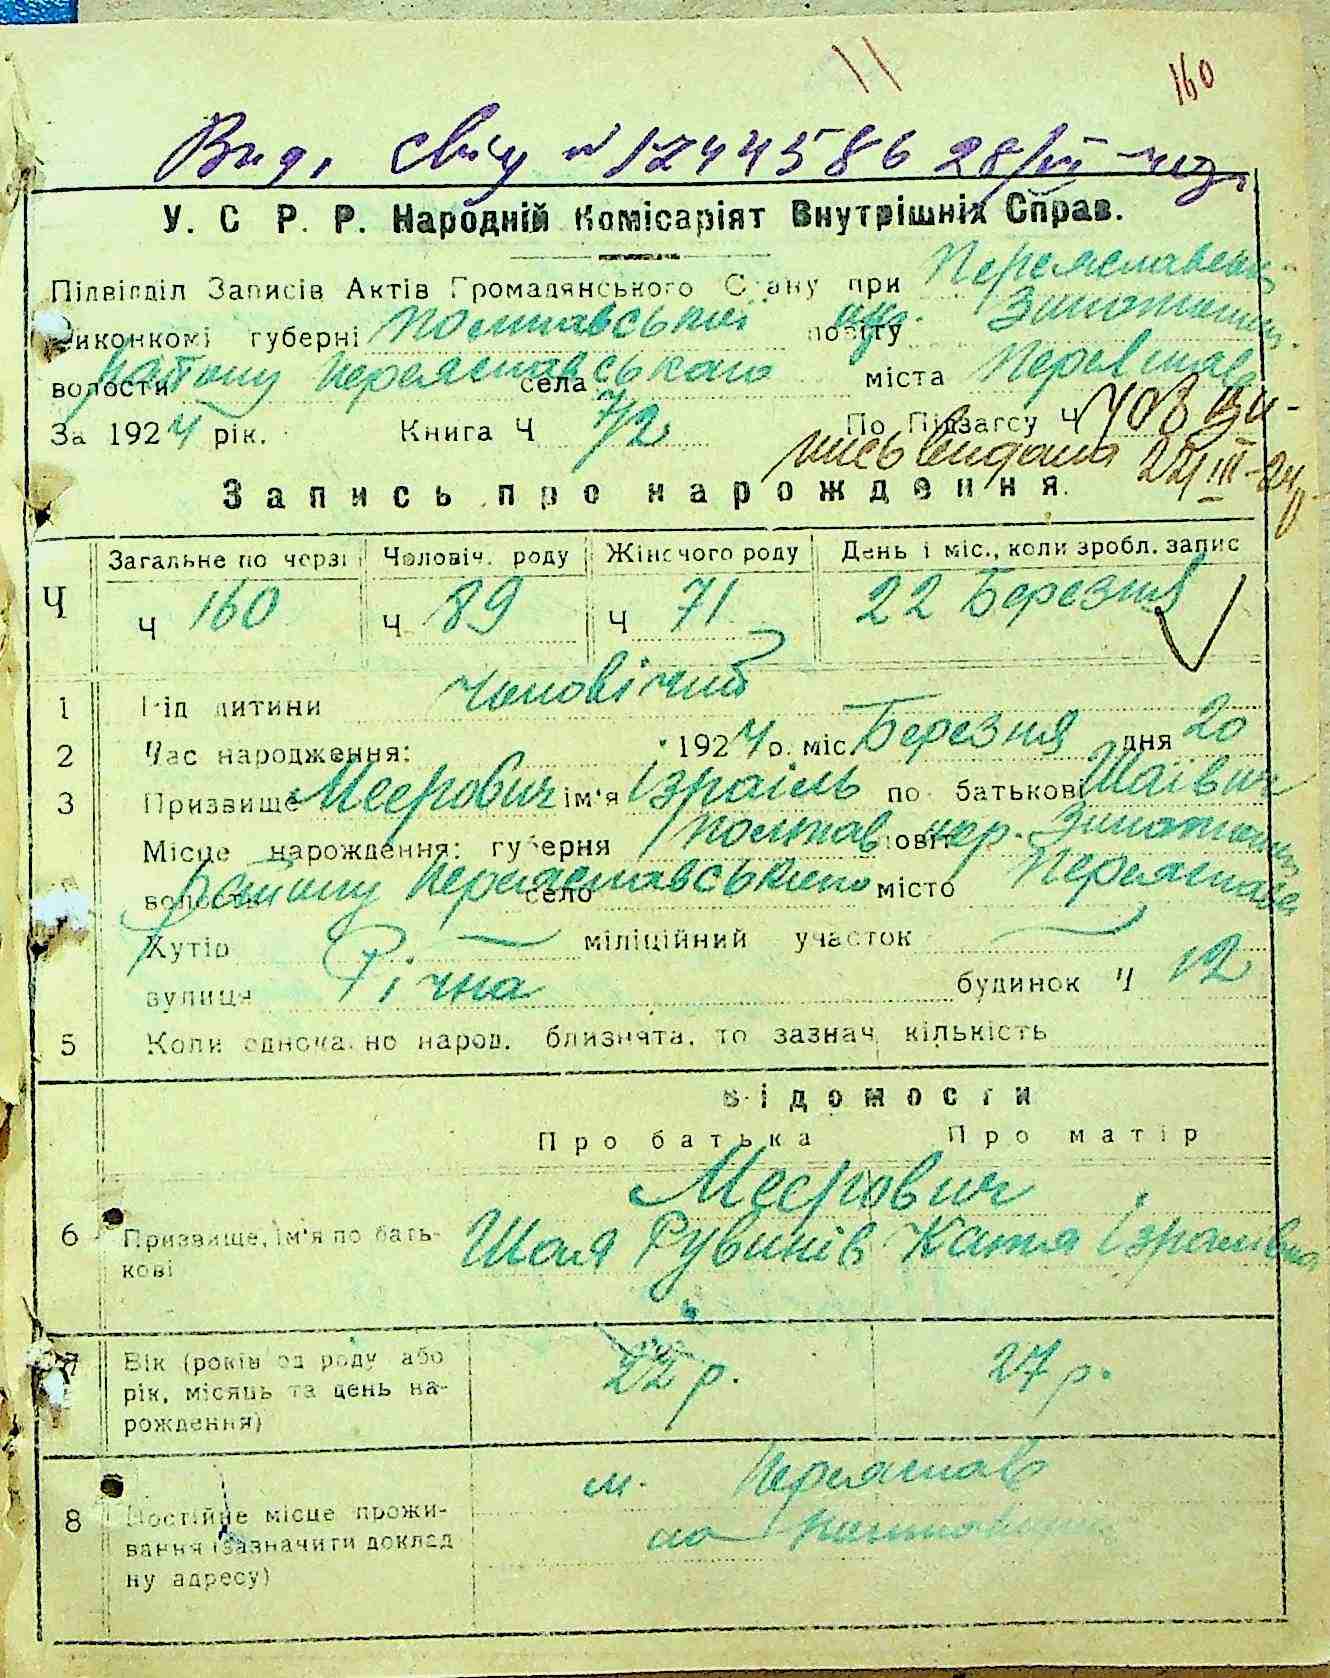 11 160
Вид. свід № 1744586 28/VI
У. С Р. Р. Народній Комісаріят Внутрішніх Справ.
Підвідділ Записів Актів Громадянського Стану при Переяславськ
Виконкомі губерні Полтавської окр. повіту Золотоніськ.
волости Району Переяславського села міста Переяслав
За 1924 рік. Книга Ч 7/2 По Підзагсу Ч 708 Ви-
пись видана 22/III-24р
Запись про нарождення.
Загальне по черзі Чоловіч. роду Жіночого роду День і міс., коли зробл. запис
Ч Ч 160 Ч 89 Ч 71 22 Березня
1 Рід дитини чоловічий
2 Час народження: 1924 р. міс. Березня дня 20
3 Призвище Меєрович ім'я Ізраіль по батькові Шаівич
Місце нарождення: губерня Полтав повіт окр. Золотоніськ
волость Району Переяславського село місто Переяслав
Хутір міліційний участок
вулиця Річна будинок Ч 12
5 Коли одночасно народ. близнята, то зазнач. кількість
Відомости
Про батька Про матір
Меєрович
6 Призвище, ім'я по бать- Шая Рувинів Катя Ізраілівна
кові
7 Вік (років од роду або 22 р. 27 р.
рік, місяць та день на-
рождення)
м. Переяслав
8 Постійне місце прожи-
вання (зазначити доклад
ну адресу)